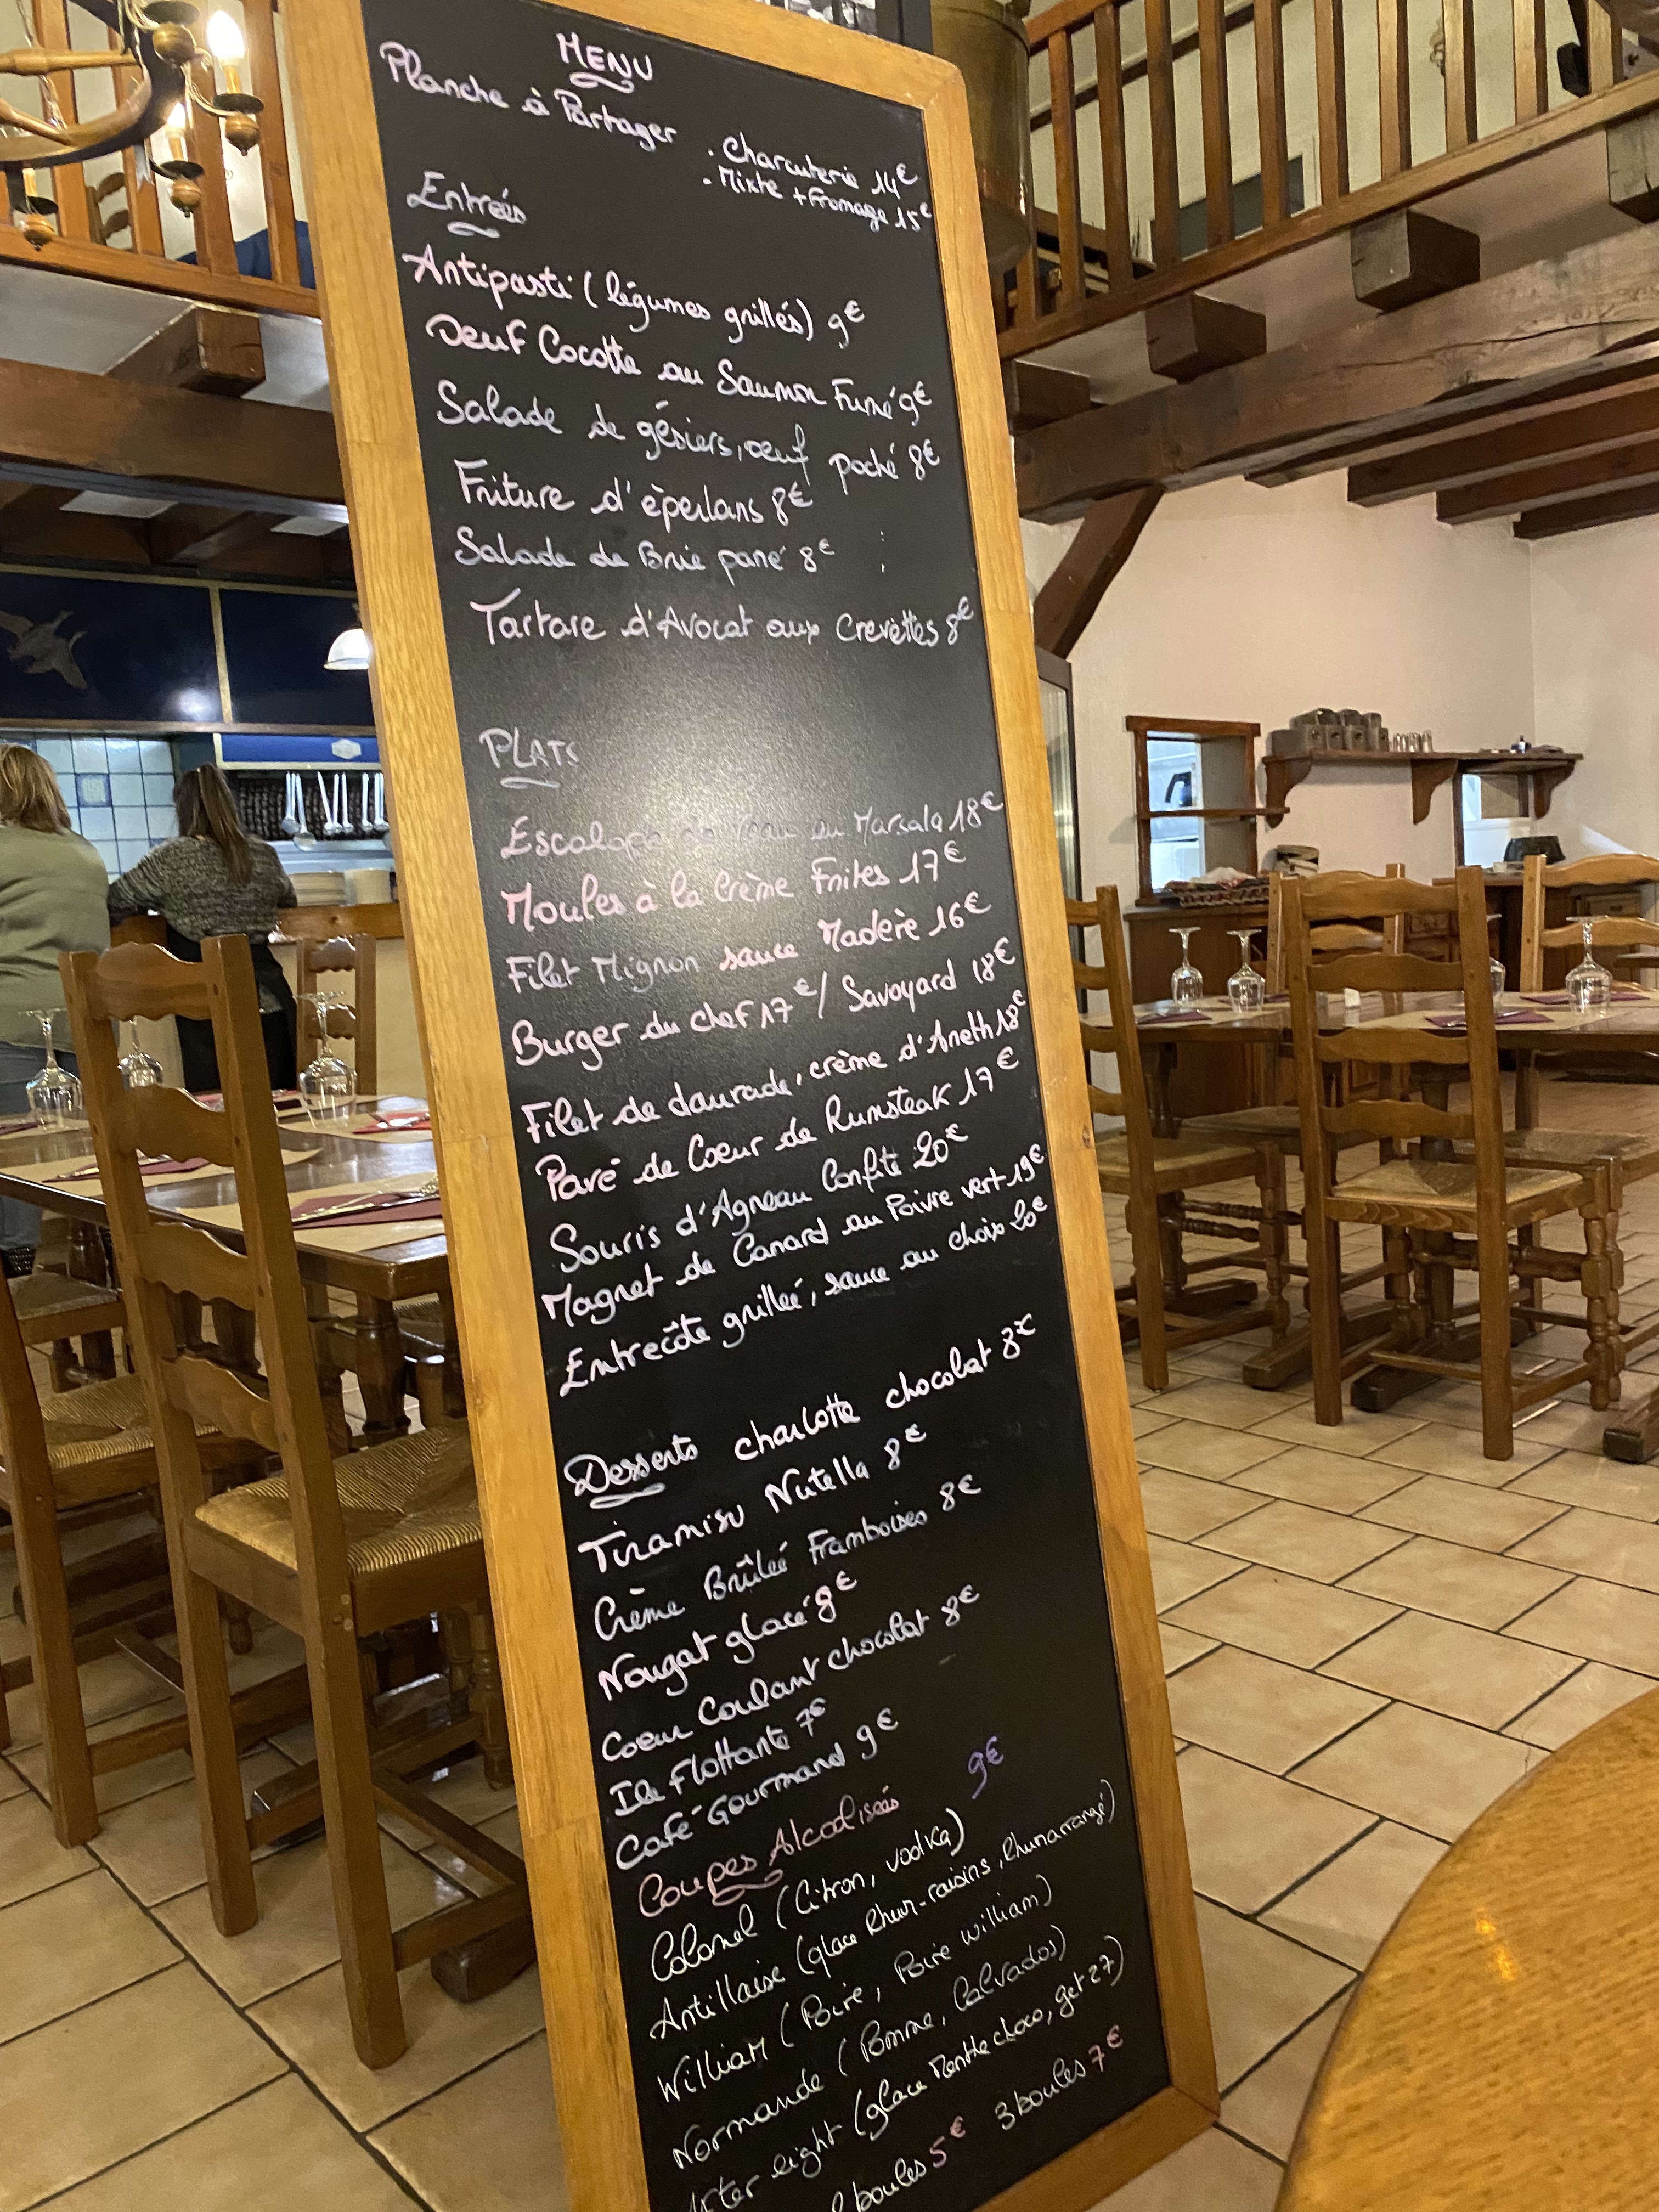 MENU
Planche à Partager
. Charcuterie 14€
. Mixte + Fromage 15€
Entrées
Antipasti (légumes grillés) 9€
Oeuf Cocotte au Saumon Fumé 9€
Salade de gésiers, oeuf poché 8€
Friture d'éperlans 8€
Salade de Brie pané 8€
Tartare d'Avocat aux Crevettes 8€
PLATS
Escalope au Marsala 18€
Moules à la Crème Frites 17€
Filet Mignon sauce Madère 16€
Burger du chef 17€ / Savoyard 18€
Filet de daurade, crème d'Aneth 18€
Pavé de Coeur de Rumsteak 17€
Souris d'Agneau Confite 20€
Magret de Canard au Poivre vert 19€
Entrecôte grillée, sauce au choix 20€
Desserts charlotte chocolat 8€
Tiramisu Nutella 8€
Crème Brûlée Framboises 8€
Nougat glacé 8€
Coeur Coulant chocolat 8€
Ile Flottante 7€
Café Gourmand 9€
Coupes Alcoolisées 9€
Colonel (Citron, vodka)
Antillaise (glace Rhum-raisins, Rhum arrangé)
William (Poire, Poire William)
Normande (Pomme, Calvados)
After eight (glace Menthe choco, get 27)
2 boules 5€ 3 boules 7€